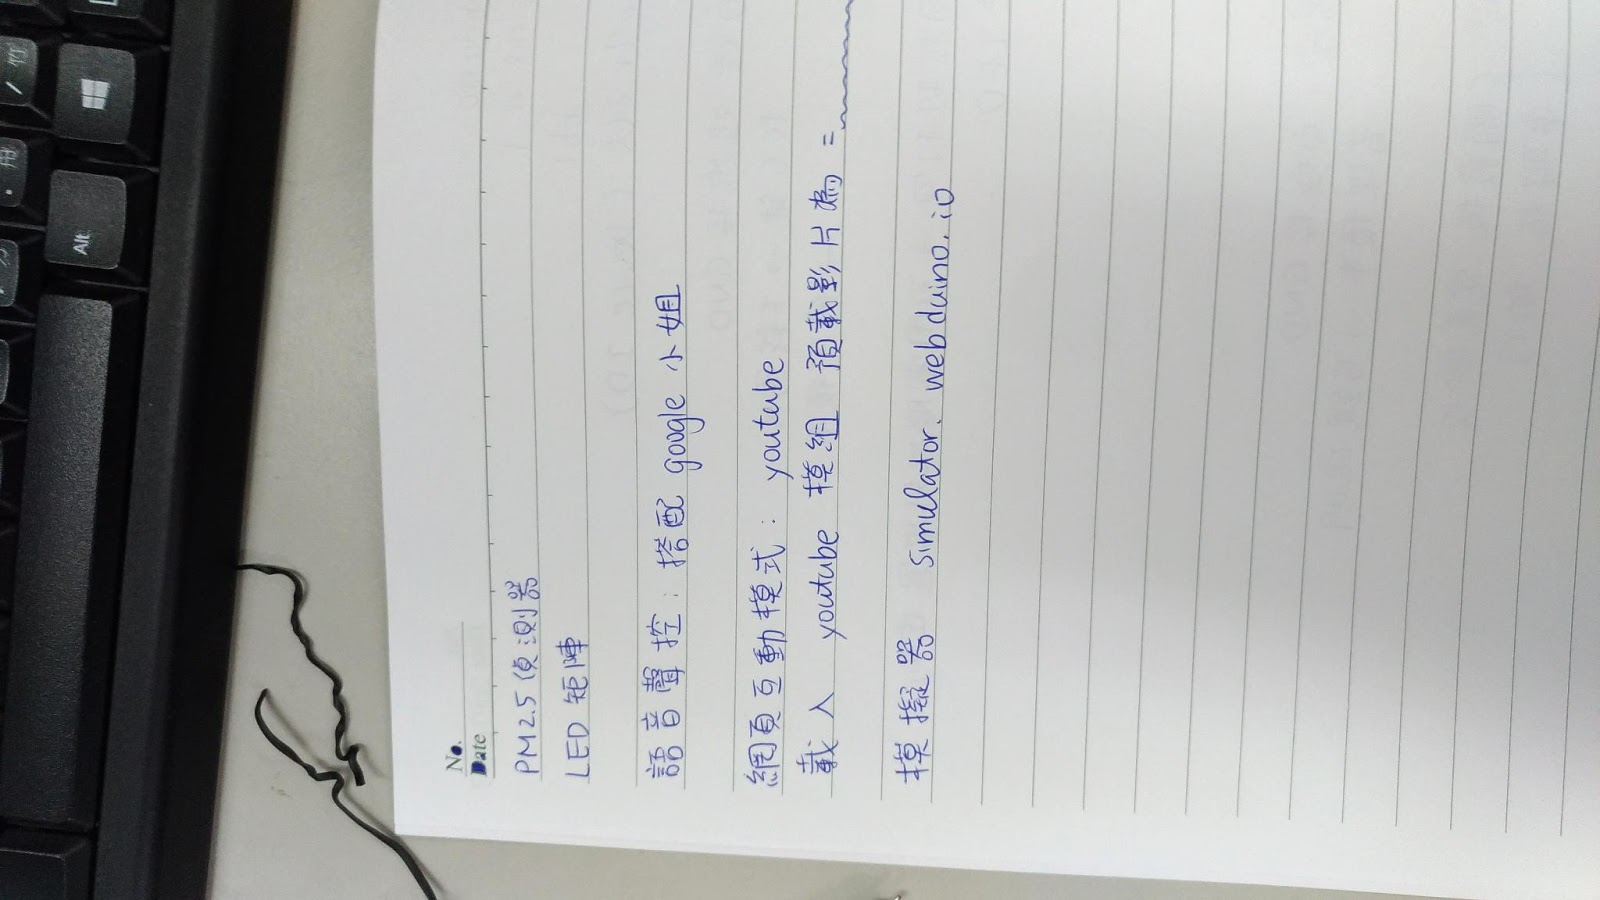 No.
Date
PM2.5偵測器
LED 矩陣
語音聲控：搭配 google 小姐
網頁互動模式：youtube
載入 youtube 模組 預載影片為 =
模擬器 simulator.webduino.io
Alt